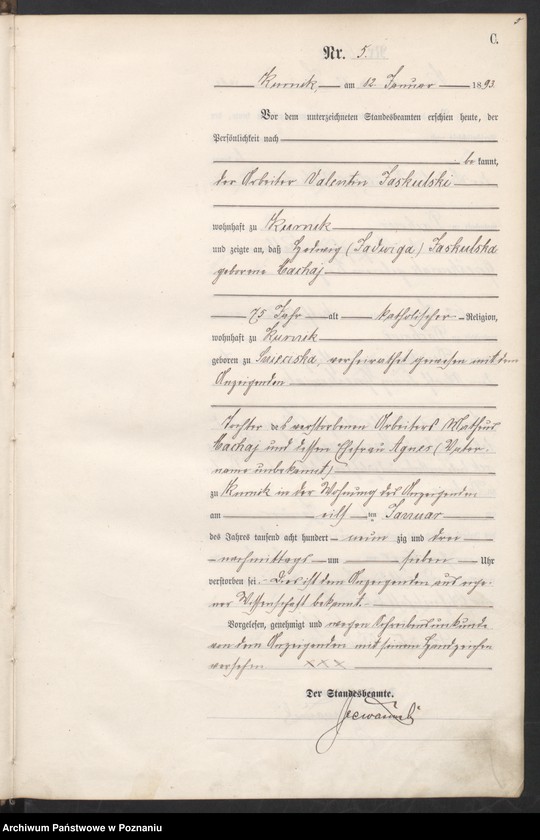 5
C.
Nr. 5.
Kurnik, am 12 Januar 1893.
Vor dem unterzeichneten Standesbeamten erschien heute, der
Persönlichkeit nach
bekannt,
der Arbeiter Valentin Jaskulski
wohnhaft zu Kurnik
und zeigte an, daß Hedwig (Jadwiga) Jaskulska
geborene Cachaj
75 Jahr alt katholischer Religion,
wohnhaft zu Kurnik
geboren zu verheirathet gewesen mit dem
Anzeigenden
Tochter des verstorbenen Arbeiters Mathias
Cachaj und dessen Ehefrau Agnes (Vater-
name unbekannt)
zu Kurnik in der Wohnung des Anzeigenden
am eilf ten Januar
des Jahres tausend acht hundert neun zig und drei
nachmittags um sieben Uhr
verstorben sei. Dies ist dem Anzeigenden aus eige-
ner Wissenschaft bekannt.
Vorgelesen, genehmigt und wegen Schreibensunkunde
von dem Anzeigenden mit seinem Handzeichen
versehen XXX
Der Standesbeamte.
Archiwum Państwowe w Poznaniu